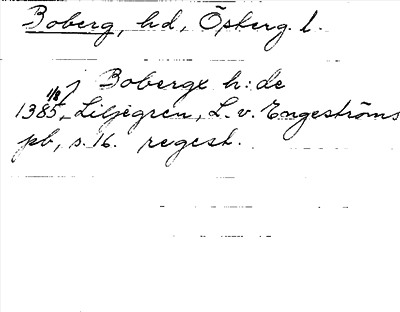 Boberg, hd, Österg. l.
j Bobergx h:de
1385 1/8, Liljegren, L. v. Engeströms
pb, s. 16. regest.